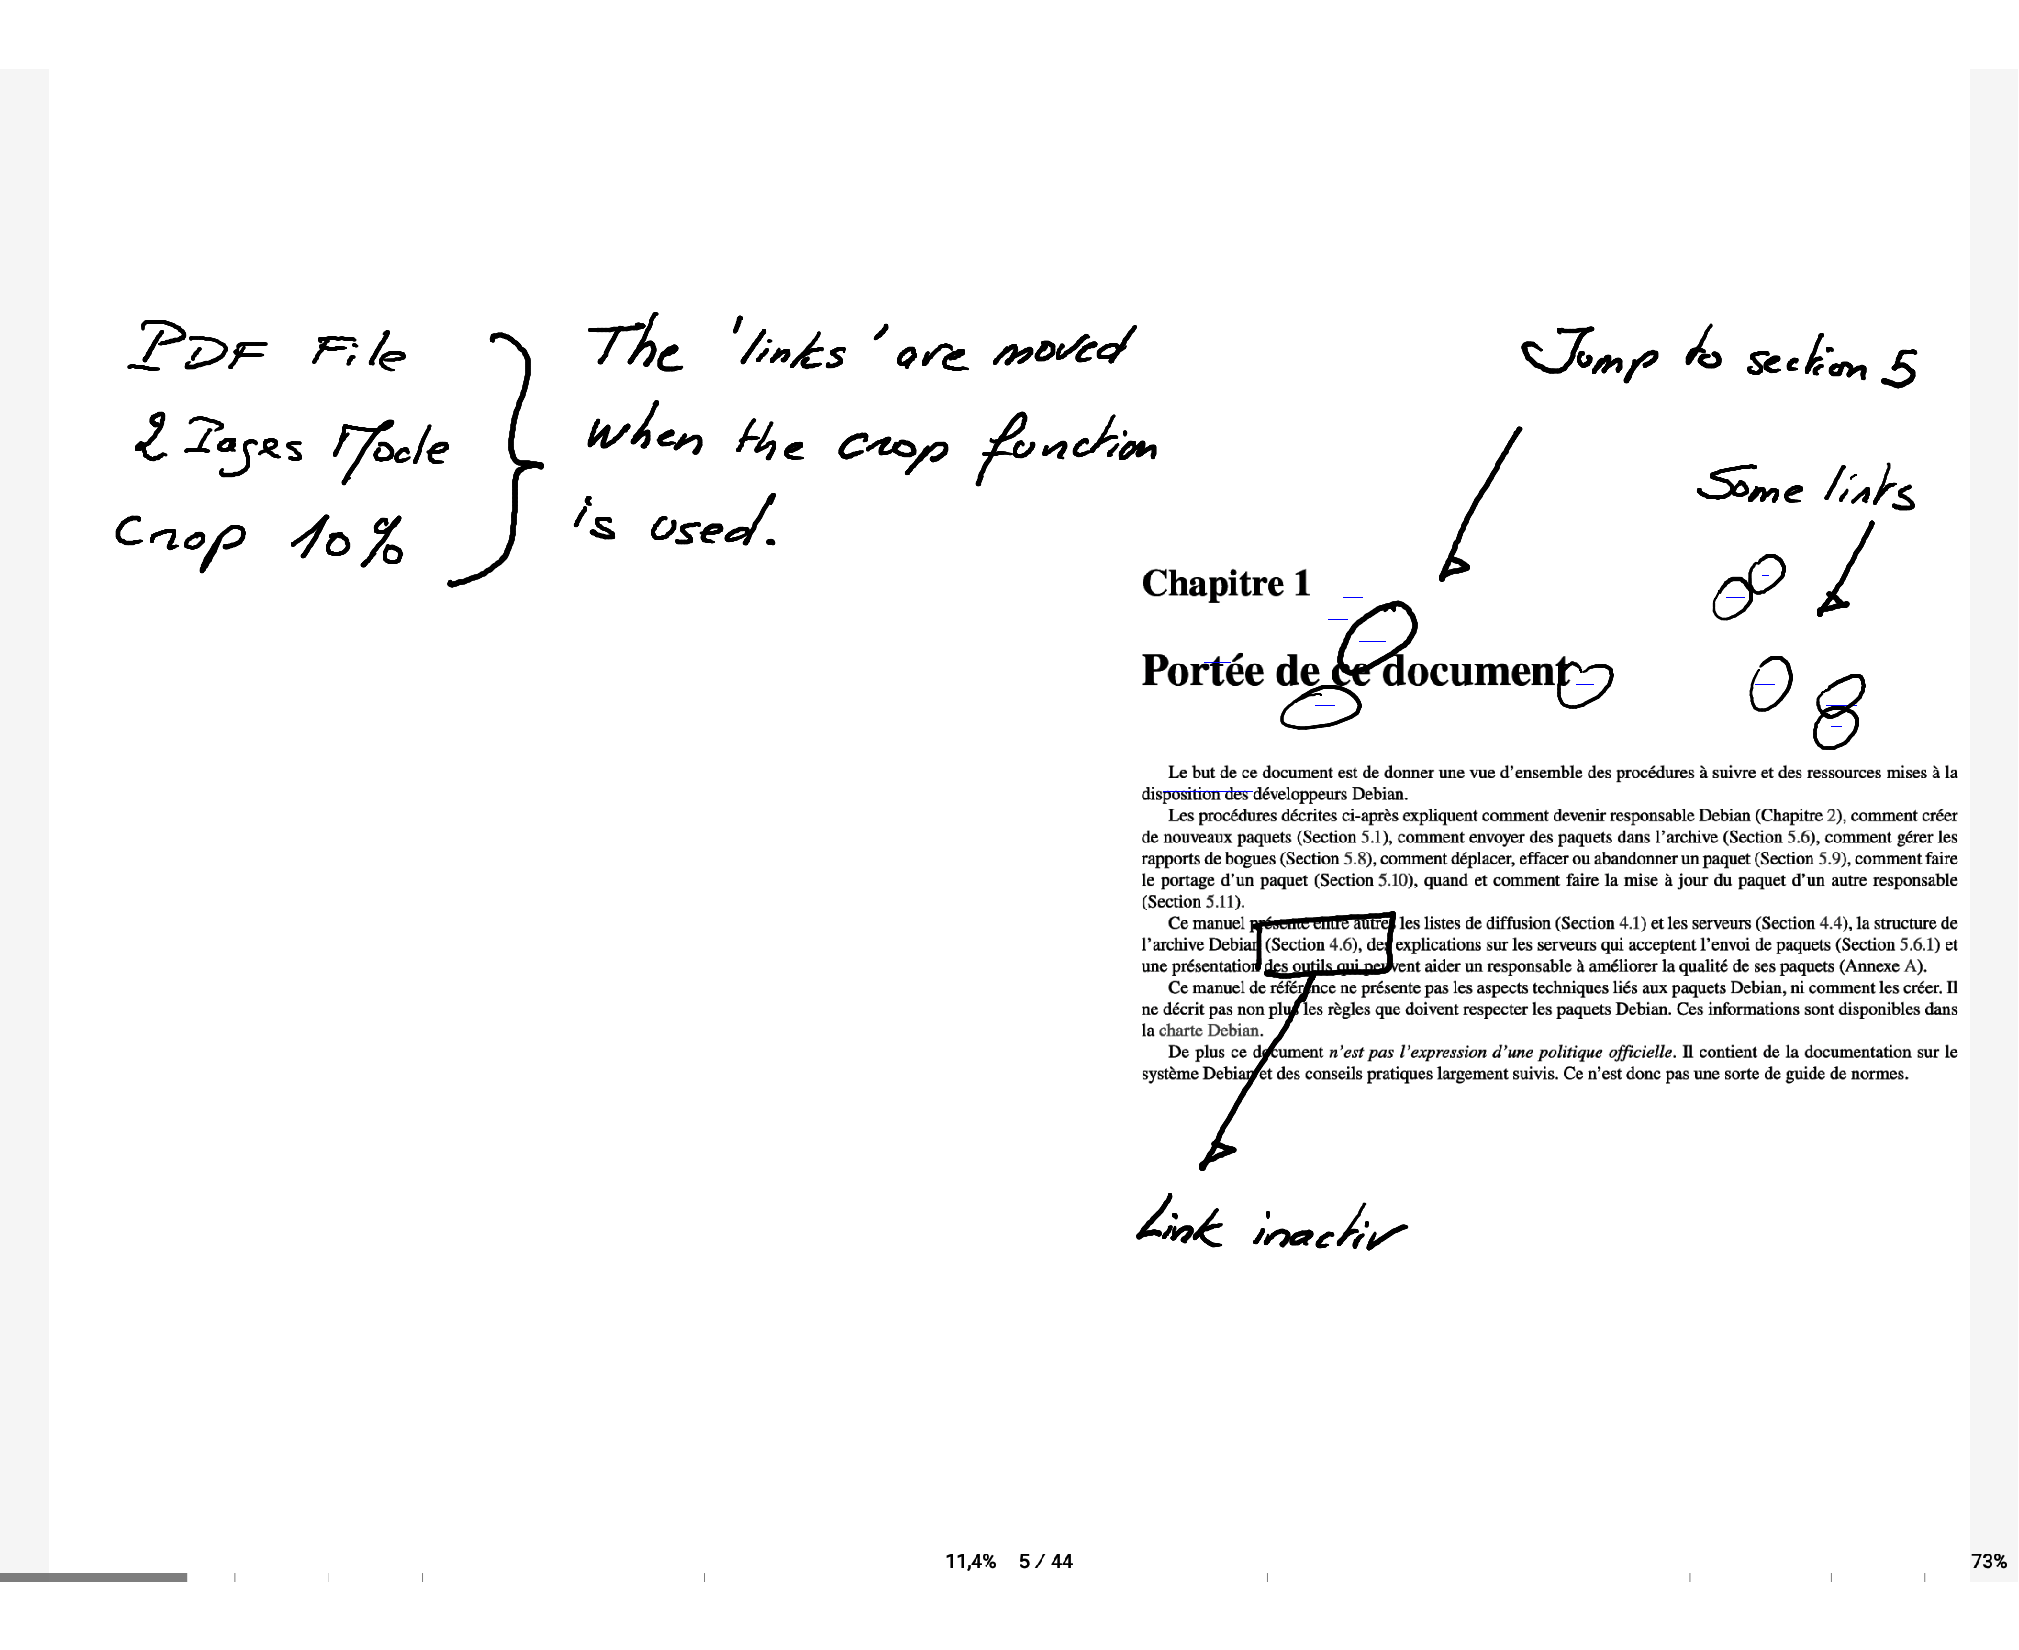 PDF File
2 Pages Mode
Crop 10%
The 'links' are moved
when the crop function
is used.
Jump to section 5
Some links
Chapitre 1
Portée de ce document
Le but de ce document est de donner une vue d'ensemble des procédures à suivre et des ressources mises à la
disposition des développeurs Debian.
Les procédures décrites ci-après expliquent comment devenir responsable Debian (Chapitre 2), comment créer
de nouveaux paquets (Section 5.1), comment envoyer des paquets dans l'archive (Section 5.6), comment gérer les
rapports de bogues (Section 5.8), comment déplacer, effacer ou abandonner un paquet (Section 5.9), comment faire
le portage d'un paquet (Section 5.10), quand et comment faire la mise à jour du paquet d'un autre responsable
(Section 5.11).
Ce manuel présente entre autres les listes de diffusion (Section 4.1) et les serveurs (Section 4.4), la structure de
l'archive Debian (Section 4.6), des explications sur les serveurs qui acceptent l'envoi de paquets (Section 5.6.1) et
une présentation des outils qui peuvent aider un responsable à améliorer la qualité de ses paquets (Annexe A).
Ce manuel de référence ne présente pas les aspects techniques liés aux paquets Debian, ni comment les créer. Il
ne décrit pas non plus les règles que doivent respecter les paquets Debian. Ces informations sont disponibles dans
la charte Debian.
De plus ce document n'est pas l'expression d'une politique officielle. Il contient de la documentation sur le
système Debian et des conseils pratiques largement suivis. Ce n'est donc pas une sorte de guide de normes.
Link inactiv
11,4% 5 / 44
73%